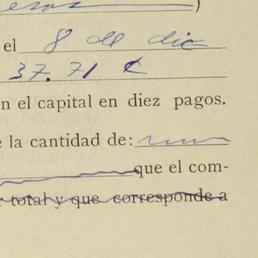 esos )
el 8 de dic
37.71 ¢
n el capital en diez pagos.
e la cantidad de:
que el com-
r total y que corresponde a